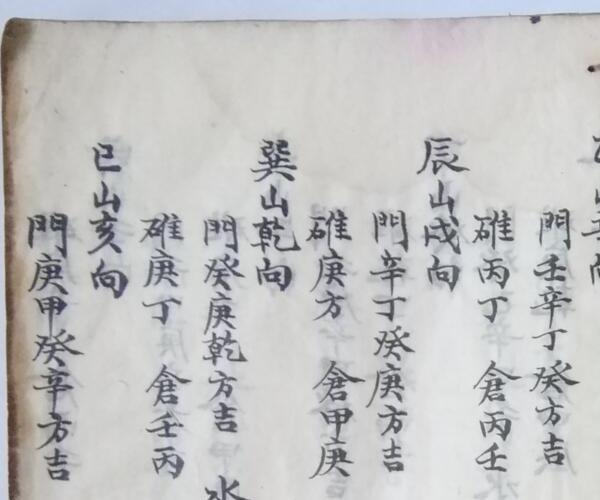 門壬辛丁癸方吉
碓丙丁 倉丙壬
辰山戌向
門辛丁癸庚方吉
碓庚方 倉甲庚
巽山乾向
門癸庚乾方吉 水
碓庚丁 倉壬丙
巳山亥向
門庚甲癸辛方吉